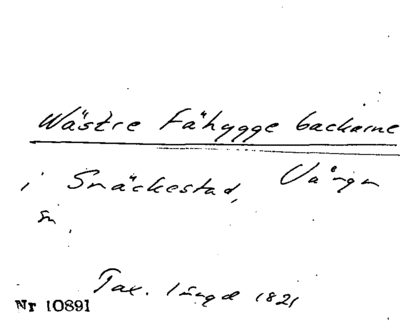 Wästre Fähygge backarne
i Snäckestad, Vånga
sn.
Tax. längd 1821
Nr 10891